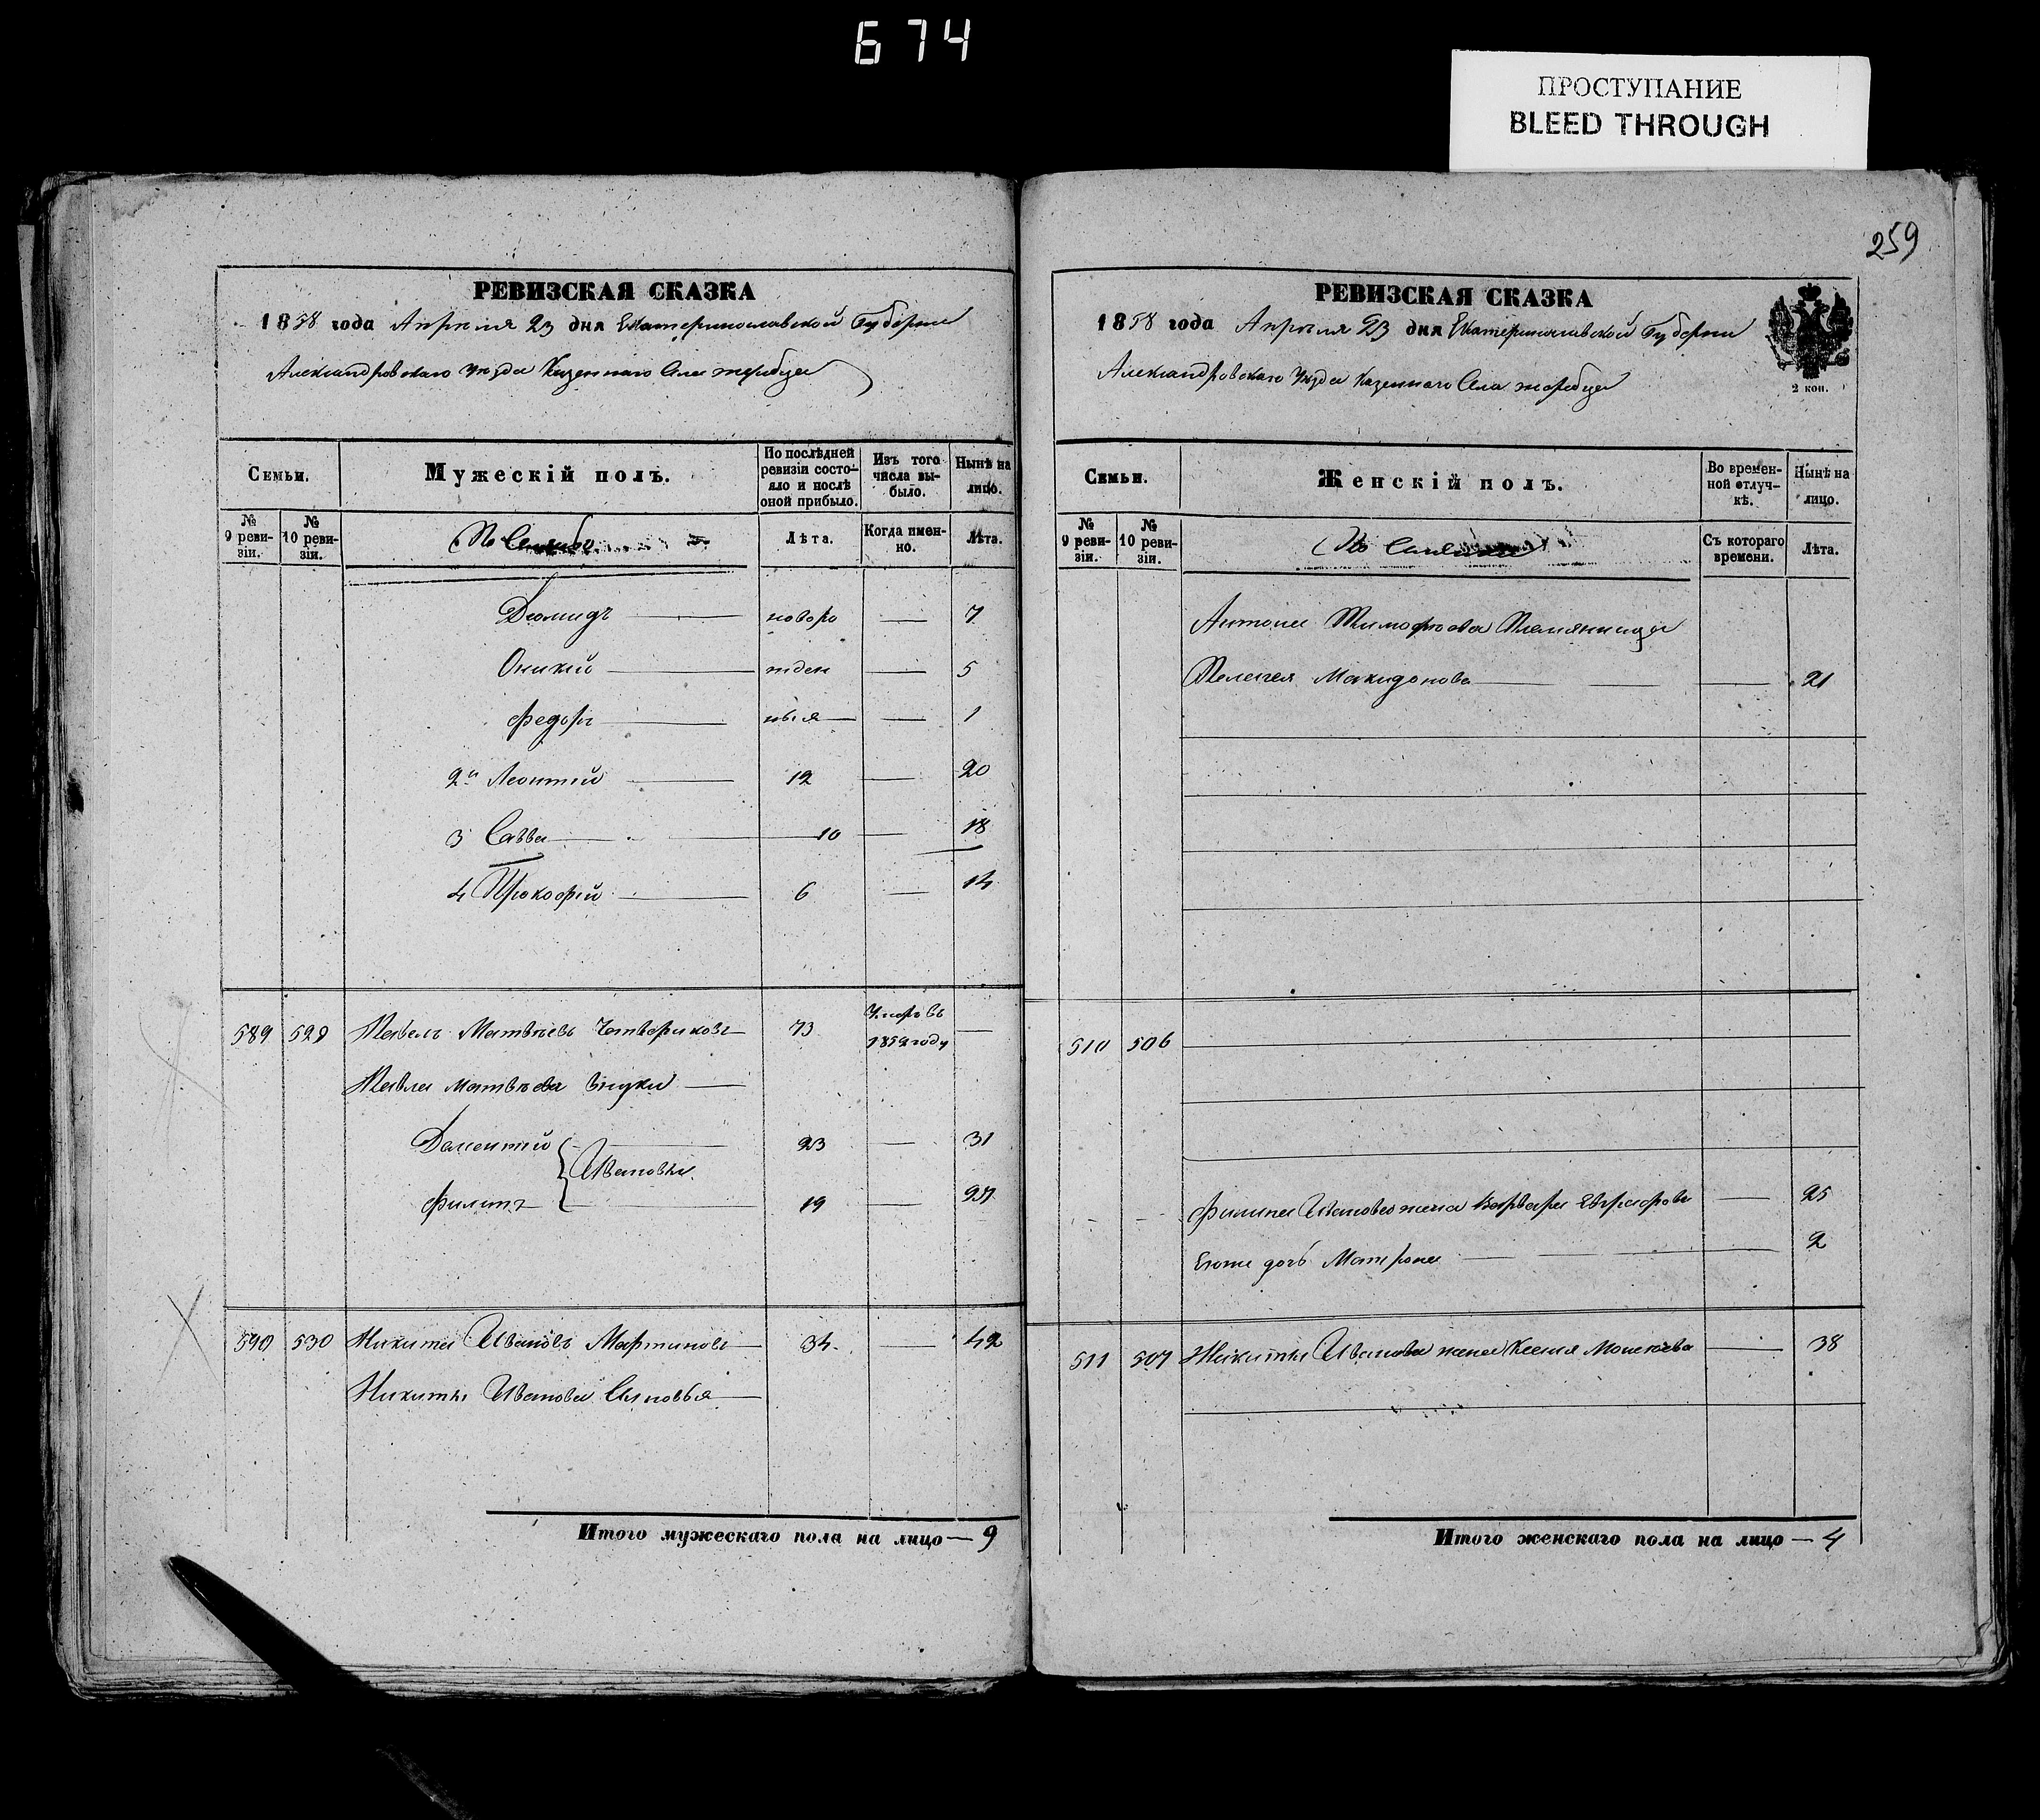 674
ПРОСТУПАНИЕ
BLEED THROUGH
РЕВИЗСКАЯ СКАЗКА
1858 года Апреля 23 дня Екатеринославской Губернии
Александровского Уезда Казенного Села жеребца
Семьи.
Мужескій полъ.
По послѣдней ревизіи состо-яло и послѣ оной прибыло.
Изъ того числа вы-было.
Нынѣ на лицо.
№ 9 реви-зіи.
№ 10 реви-зіи.
Лѣта.
Когда имен-но.
Лѣта.
Деомидъ — новоро — 7
Оникій — жден — 5
Федоръ — ныя — 1
2й Леонтій — 12 — 20
3 Савва — 10 — 18
4 Прокофій — 6 — 14
589 529 Павелъ Матвѣевъ Четвериковъ 73 Умеръ въ 1852 году —
Павла Матвѣева внуки —
Дометій — 23 — 31
Ивановы
Филипъ — 19 — 27
590 530 Никита Ивановъ Мартиновъ — 34 — 42
Никиты Иванова Сыновья —
Итого мужескаго пола на лицо — 9
259
РЕВИЗСКАЯ СКАЗКА
1858 года Апреля 23 дня Екатеринославской Губернии
Александровского Уезда Казенного Села жеребца
2 коп.
Семьи.
Женскій полъ.
Во времен-ной отлуч-кѣ.
Нынѣ на лицо.
№ 9 реви-зіи.
№ 10 реви-зіи.
Съ котораго времени.
Лѣта.
Антона Тимофеева Племянница
Пелагея Макидонова — — 21
510 506
Филипа Иванова жена Варвара Евграфова — 25
Его дочь Матрона — 2
511 507 Никиты Иванова жена Ксения Моисеева — 38
Итого женскаго пола на лицо — 4